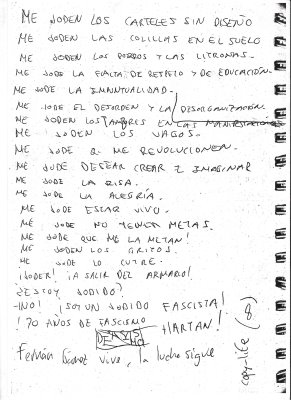 ME JODEN LOS CARTELES SIN DISEÑO
ME JODEN LAS COLILLAS EN EL SUELO
ME JODEN LOS PORROS Y LAS LITRONAS.
ME JODE LA FALTA DE RESPETO Y DE EDUCACIÓN.
ME JODE LA IMPUNTUALIDAD.
ME JODE EL DESORDEN Y LA DESORGANIZACIÓN.
ME JODEN LOS TAMBORES EN LAS MANIFESTACIONES
ME JODEN LOS VAGOS.
ME JODE Q. ME REVOLUCIONEN.
ME JODE DESEAR CREAR E IMAGINAR
ME JODE LA RISA.
ME JODE LA ALEGRÍA.
ME JODE ESTAR VIVO.
ME JODE NO TENER METAS.
ME JODE QUE ME LA METAN!
ME JODEN LOS GRITOS.
ME JODE LO CUTRE.
¡JODER! ¡A SALIR DEL ARMARIO!
¿ESTOY JODIDO?
-¡NO! ¡SOY UN JODIDO FASCISTA!
¡70 AÑOS DE FASCISMO HARTAN!
vive, la lucha sigue
copy-life (8)